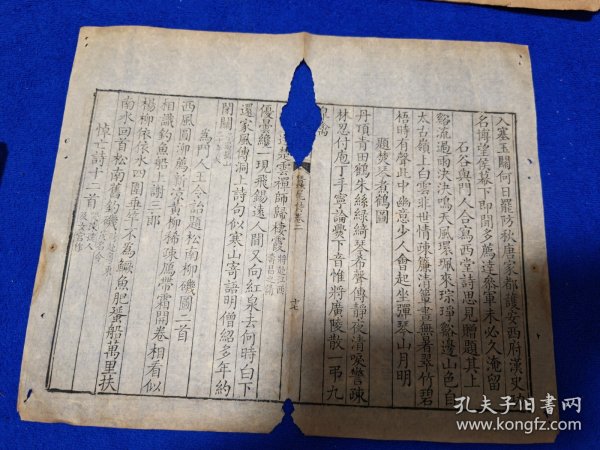 入塞玉關何日罷防秋唐家都護安西府漢史
名侔望侯幕下即開多薦達參軍未必久淹留
石谷與門人合寫西堂詩思見贈題其上
谿流過雨決決鳴天風環珮來琮琤谿邊山色自
太古嶺上白雲非世情疎簾清簟晝無暑翠竹碧
梧時有聲此中幽意少人會起坐彈琴山月明
題焚琴煮鶴圖
丹頂青田鶴朱絲綠綺琴希聲傳靜夜清唳響疎
林忍付庖丁手寧論爨下音惟將廣陵散一弔九
皋禽
卷二
楚雲禪師歸棲霞
優曇纔一現飛錫遠人間又向紅泉去何時白下
還家風傳洞上詩句似寒山寄語明僧紹多年約
閉關
為門人王令詒題松南柳磯圖二首
西風圓泖薦輕濤黃柳稀疎鴈帶雲開卷相看似
相識釣魚船上謝三郎
楊柳依依水四圍垂竿不為鱖魚肥蜑船萬里扶
南水回首松南舊釣磯
悼亡詩十二首
孔夫子旧书网
www.kongfz.com